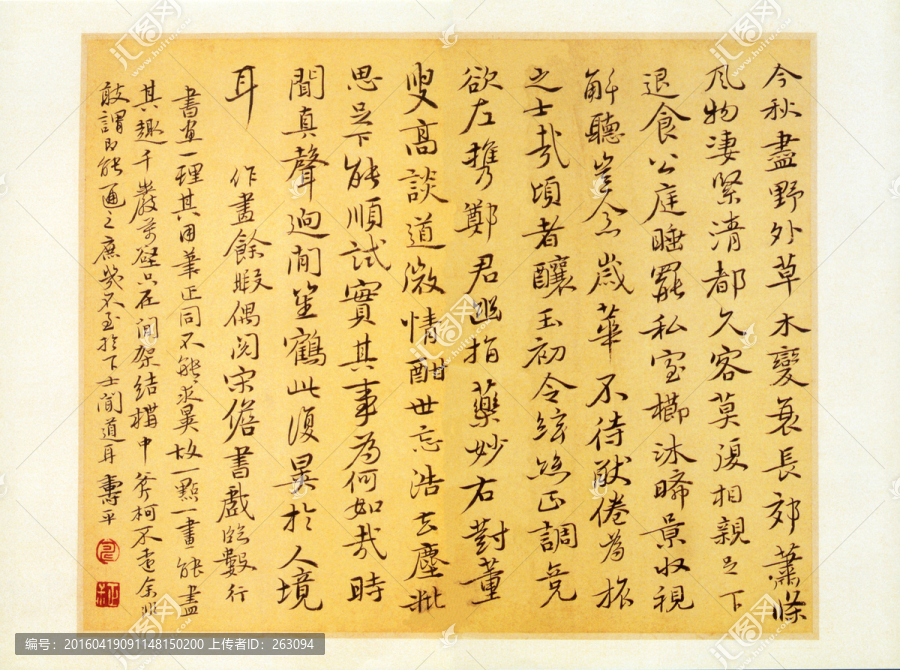 今秋盡野外草木變衰長郊蕭條
風物凄緊清都久客莫復相親足下
退食公庭睡罷私室櫛沐晞景收視
解聽豈念歲華不待猒倦為旅
之士哉頃者釀玉初令絃絲正調竟
欲左携鄭君幽指藥妙右對董
叟高談道微情酣世忘浩去塵粃
思足下能順試實其事為何如哉時
聞真聲逈澗笙鶴此復異於人境
耳
作畫餘暇偶閱宋儋書戲臨數行
書畫一理其用筆正同不能求異故一點一畫能盡
其趣千巖萬壑只在間架結構中斧柯不遠余
敢謂即能通之庶幾不至於下士聞道耳 壽平
汇图网
www.huitu.com
编号：20160419091148150200 上传者ID：263094